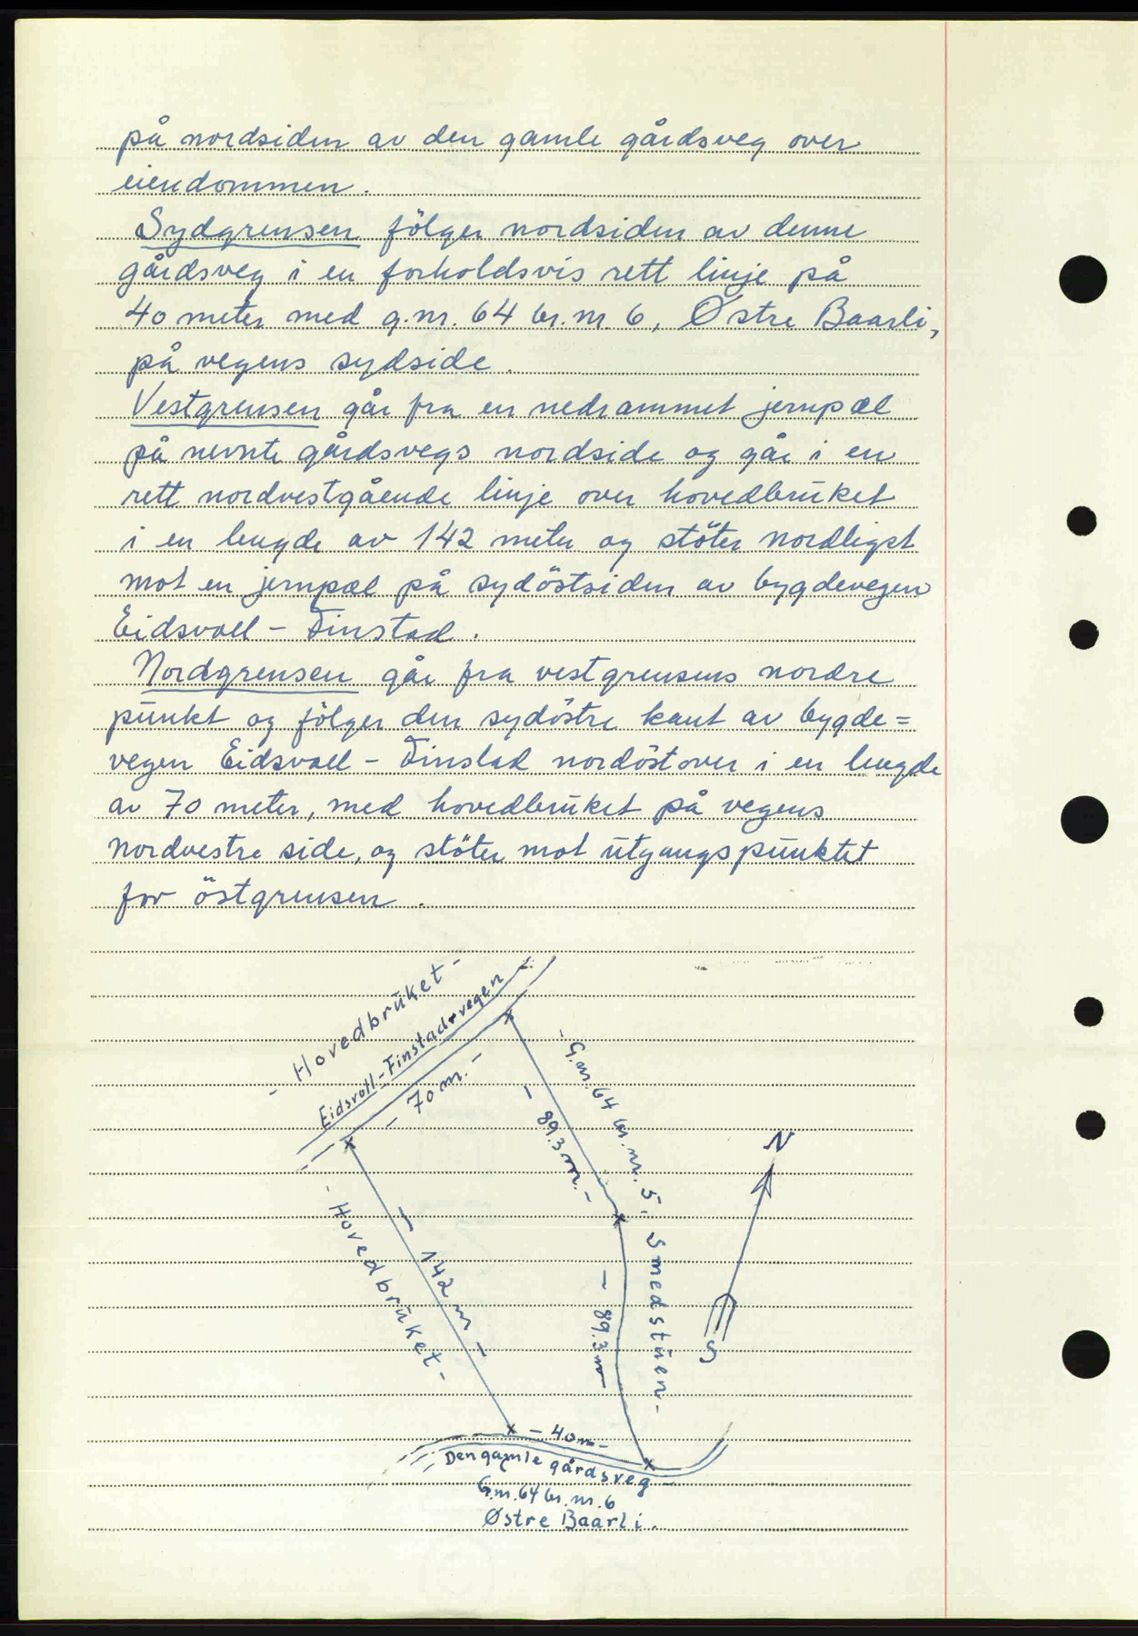 på nordsiden av den gamle gårdsveg over
eiendommen.
Sydgrensen følger nordsiden av denne
gårdsveg i en forholdsvis rett linje på
40 meter med g.nr. 64 br.nr 6, Østre Baarli,
på vegens sydside.
Vestgrensen går fra en nedrammet jernpæl
på nevnte gårdsvegs nordside og går i en
rett nordvestgående linje over hovedbrüket
i en lengde av 142 meter og stöter nordligst
mot en jernpæl på sydöstsiden av bygdevegen
Eidsvoll - Finstad.
Nordgrensen går fra vestgrensens nordre
pünkt og fölger den sydöstre kant av bygde=
vegen Eidsvoll - Finstad nordöstover i en lengde
av 70 meter, med hovedbrüket på vegens
nordvestre side, og stöter mot ütgangspünktet
for östgrensen.
- Hovedbrüket -
Eidsvoll - Finstad-vegen
- 70 m. -
- G.nr. 64 br. nr. 5, Smedstüen -
- 89.3 m. -
N
- Hovedbrüket -
- 142 m -
- 89.3 m -
S
- 40 m -
Den gamle gårdsveg
G.nr. 64 br. nr. 6
Østre Baarli.